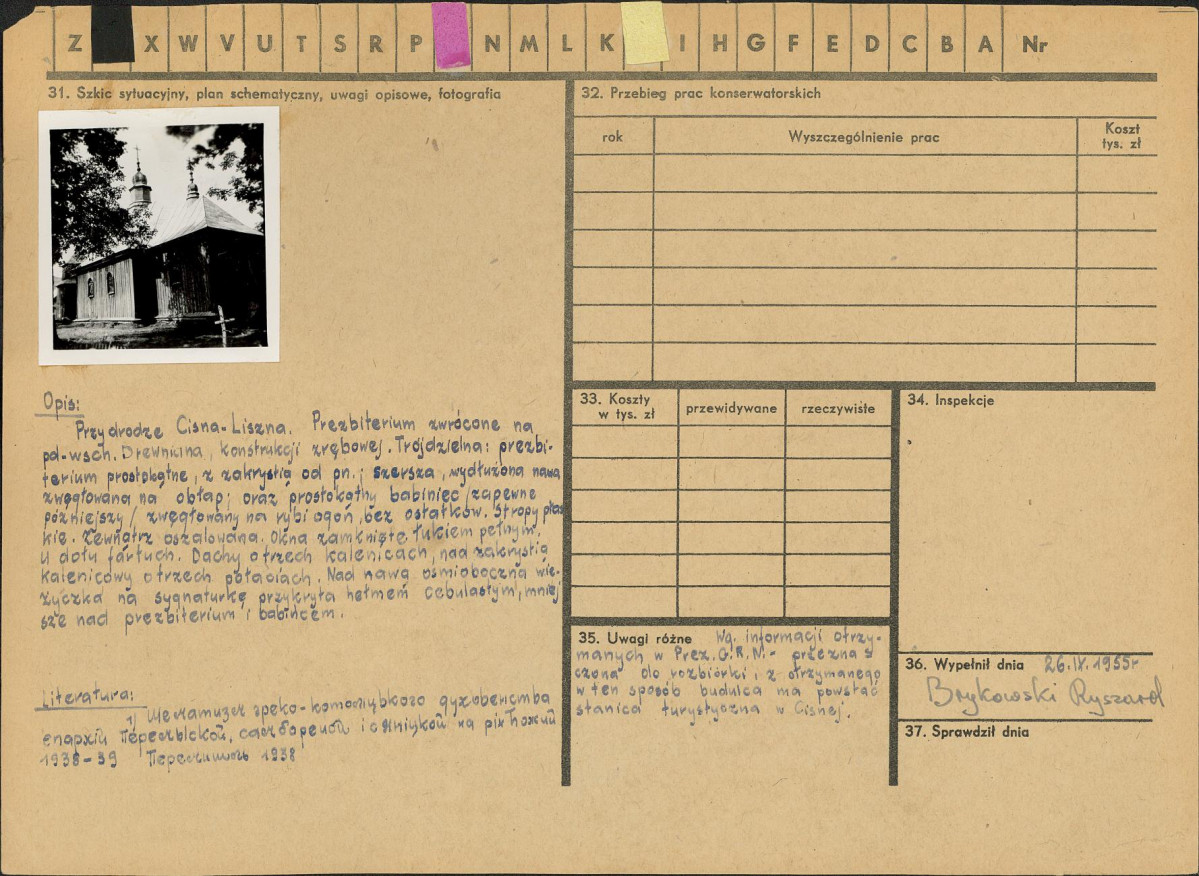 Z X W V U T S R P N M L K I H G F E D C B A Nr
31. Szkic sytuacyjny, plan schematyczny, uwagi opisowe, fotografia
Opis:
Przydrodze Cisna-Liszna. Prezbiterium zwrócone na
pd-wsch. Drewniana, konstrukcji zrębowej. Trójdzielna: prezbi-
terium prostokątne, z zakrystią od pn.; szersza, wydłużona nawa
zwęgłowana na obłap; oraz prostokątny babiniec /zapewne
późniejszy/ zwęgłowany na rybi ogon, bez ostatków. Stropy płas
kie. Zewnątrz oszalowana. Okna zamknięte łukiem pełnym.
U dołu fartuch. Dachy o trzech kalenicach, nad zakrystią
kalenicowy o trzech połaciach. Nad nawą ośmioboczna wie-
życzka na sygnaturkę przykryta hełmem cebulastym, mniej
sze nad prezbiterium i babińcem.
Literatura:
1) Шематизм греко-католыцкого духовенства
епархій Перемыской, і сяніцкой на рік Божий
1938-39 Перемишль 1938
32. Przebieg prac konserwatorskich
rok Wyszczególnienie prac Koszt
tys. zł
33. Koszty
w tys. zł przewidywane rzeczywiste
34. Inspekcje
35. Uwagi różne Wg. informacji otrzy-
manych w Prez. G.R.N.- przezna
czona do rozbiórki i z otrzymanego
w ten sposób budulca ma powstać
stanica turystyczna w Cisnej.
36. Wypełnił dnia 26.IX.1955r
Brykowski Ryszard
37. Sprawdził dnia